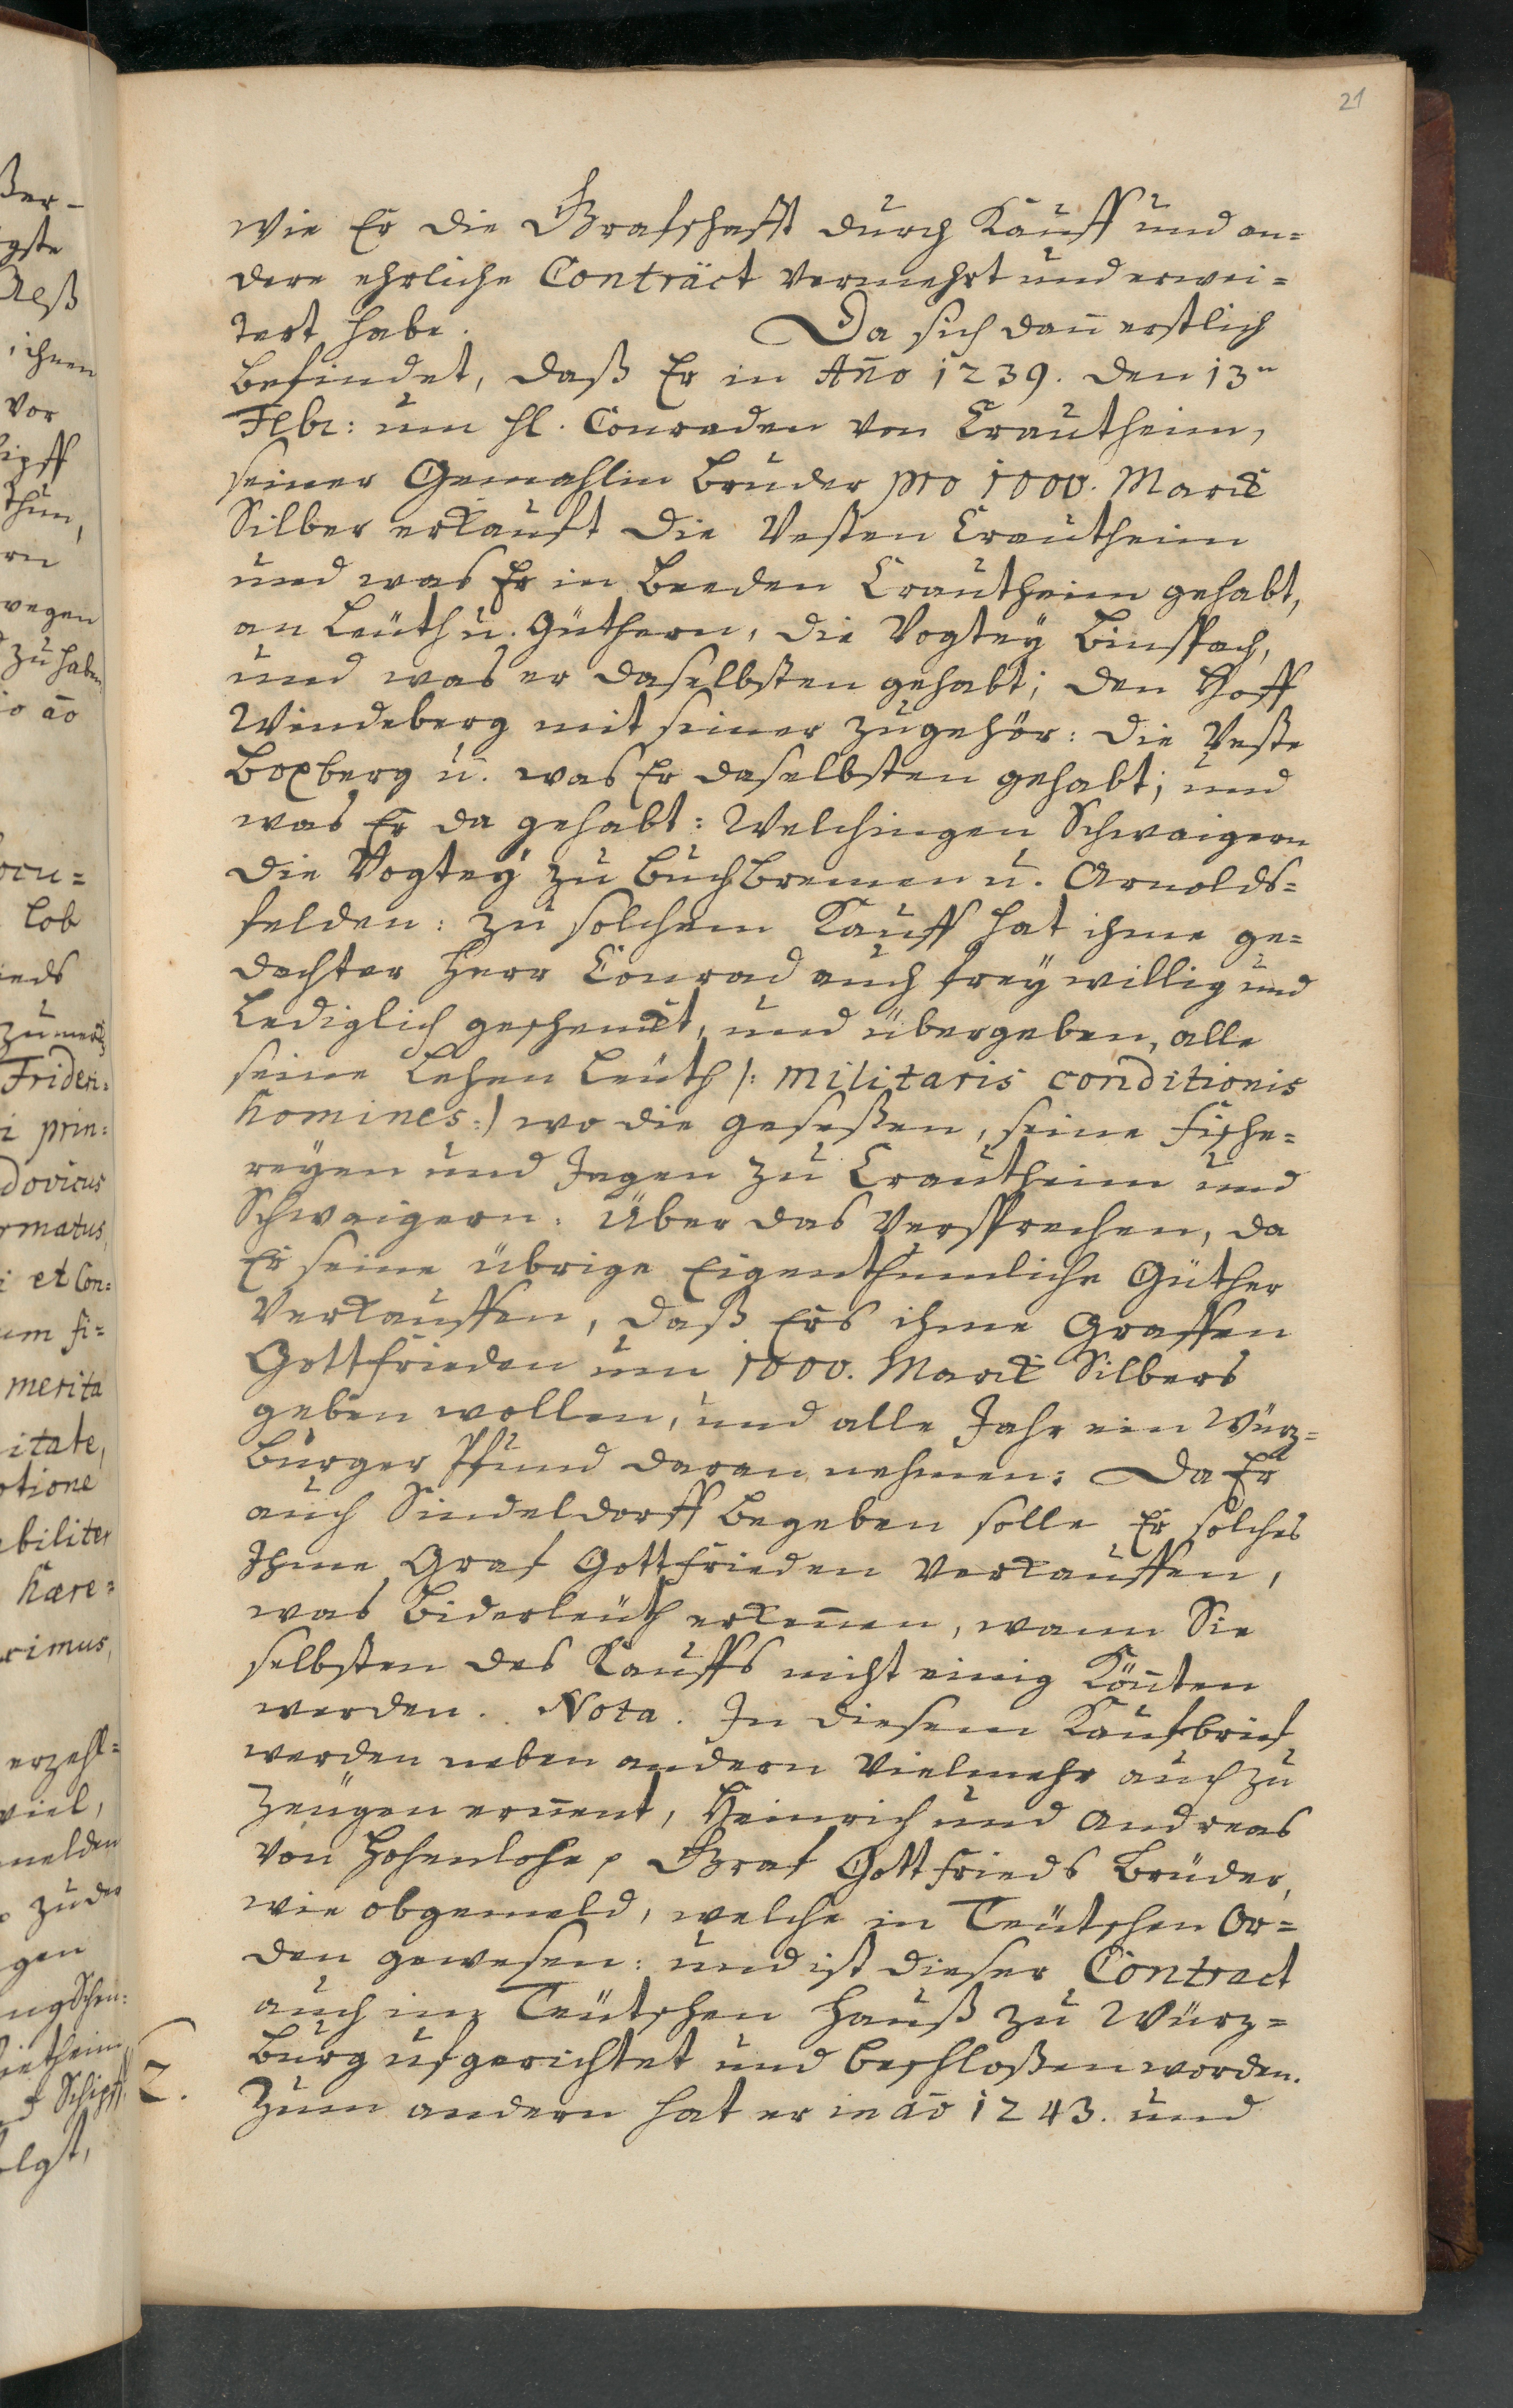 21
wie Er die Grafschafft durch Kauff und an=
dere ehrliche Contract vermehrt und erwei=
tert habe. Da sich dan̄ erstlich
befindet, daß Er in An̄o 1239. den 13n
Febr: um H. Conraden von Crautheim,
seiner Gemahlin bruder pro 1000. Marck
Silber erkauft die Vesten Crautheim
und was Er in beeden Crautheim gehabt,
an Leüth u. Güthern, die Vogteÿ Binspach,
und was er daselbsten gehabt; den Hoff
Windeberg mit seiner zugehör: die Veste
Boxberg u. was Er daselbsten gehabt; und
was Er da gehabt: Welchingen Schwaigern
die Vogteÿ zu Buchbremen u. Arnolds=
felden: zu solchem Kauff hat ihme ge=
dachter Herr Conrad auch freÿwillig und
Lediglich geschenckt, und übergeben, alle
seine Lehen Leüth /: militaris conditionis
homines:/ wo die geseßen, seine Fische=
reÿen und Jagen zu Crautheim und
Schwaigern: Über das Versprechen, da
Er seine übrige Eigenthumliche Güther
verkauffen, daß Ers ihme Graffen
Gottfrieden um 1000. Marck Silbers
geben wollen, und alle Jahr ein Würz=
burger Pfund daran nehmen: Da Er
auch Sindeldorff begeben solle Er solches
Ihme Graf Gottfrieden verkauffen,
was Biderleuth erken̄en, wann Sie
selbsten des Kauffs nicht einig kön̄ten
werden. Nota. In diesem Kaufbrief
werden neben andern vielmehr auch zu
Zeügen ernen̄t, Heinrich und Andreas
von Hohenlohe, Graf Gottfrieds Brüder,
wie obgemeld, welche in Teütschen Or=
den gewesen: und ist dieser Contract
auch im Teütschen Hauß zu Würz=
burg ufgerichtet und beschloßen worden.
2. Zum andern hat er in ao 1243. und